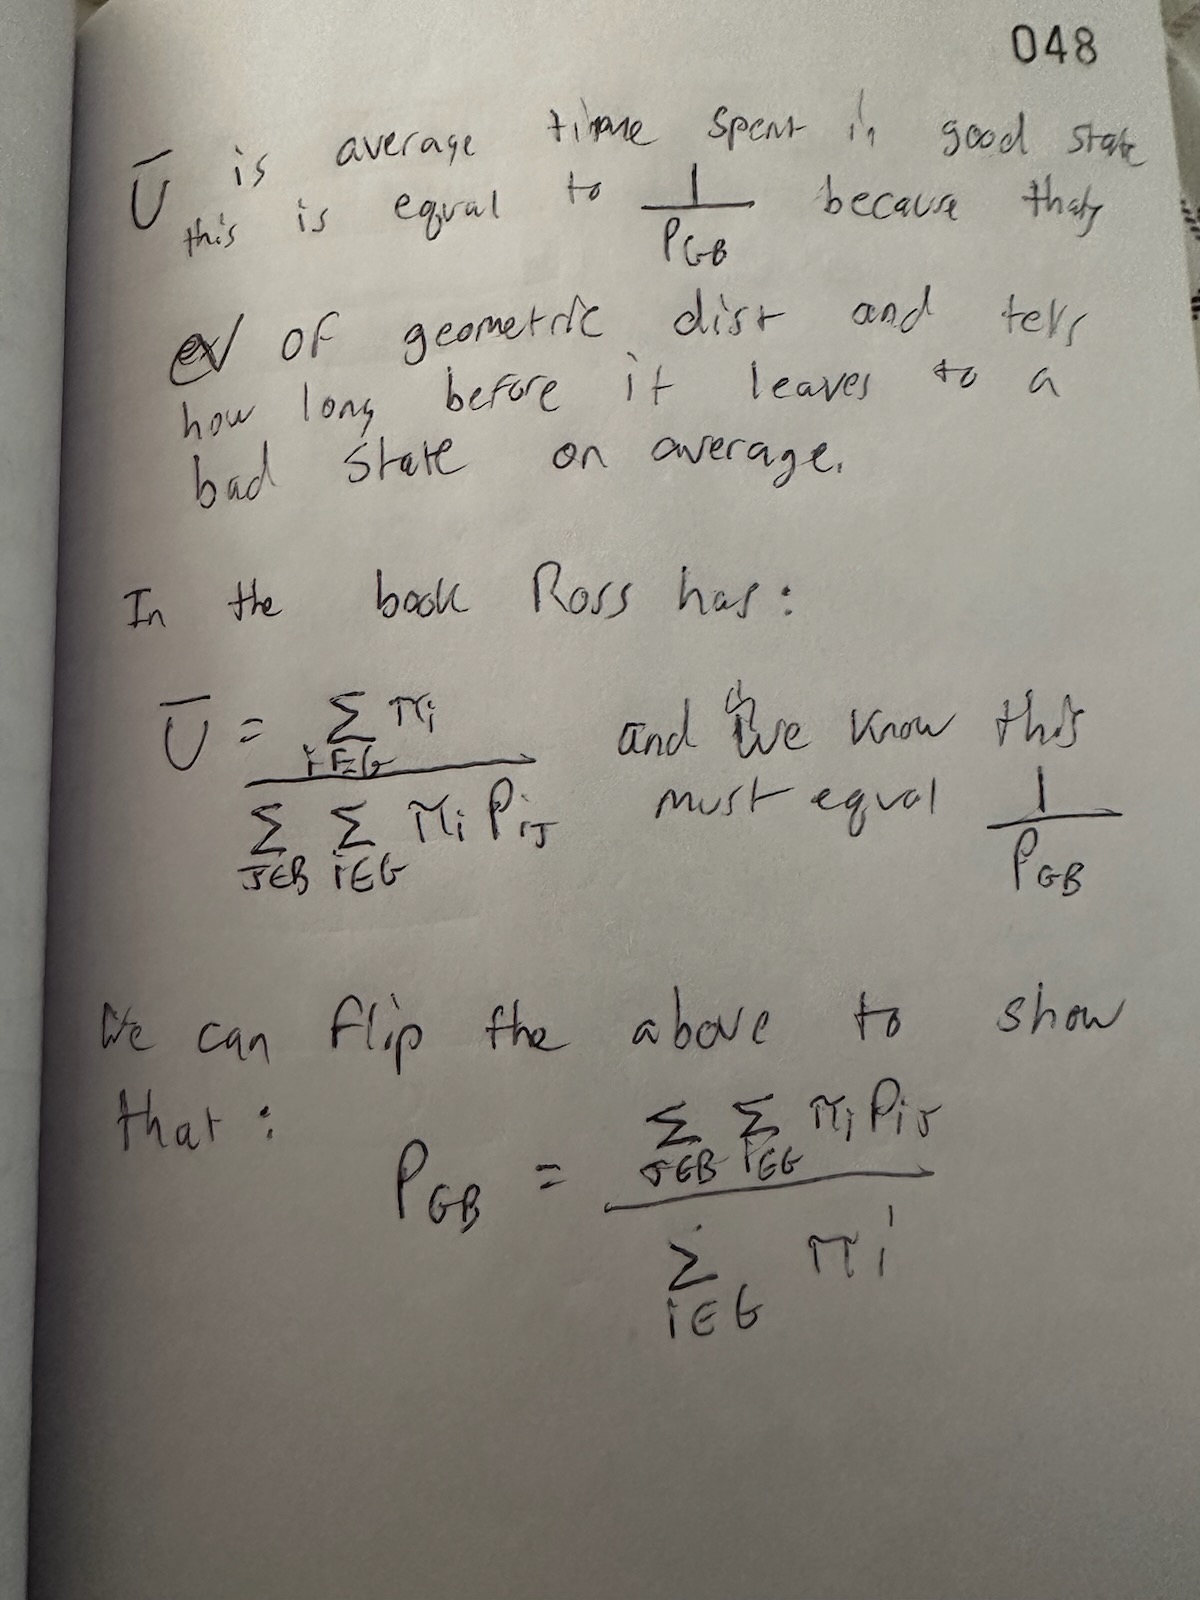 048
Ū is average time spent in good state
this is equal to 1/P_GB because thats
ev of geometric dist and tells
how long before it leaves to a
bad state on average.
In the book Ross has:
Ū = Σ_{i∈G} π_i / Σ_{J∈B} Σ_{i∈G} π_i P_{iJ} and we know this
must equal 1/P_GB
We can flip the above to show
that:
P_GB = Σ_{J∈B} Σ_{i∈G} π_i P_{iJ} / Σ_{i∈G} π_i